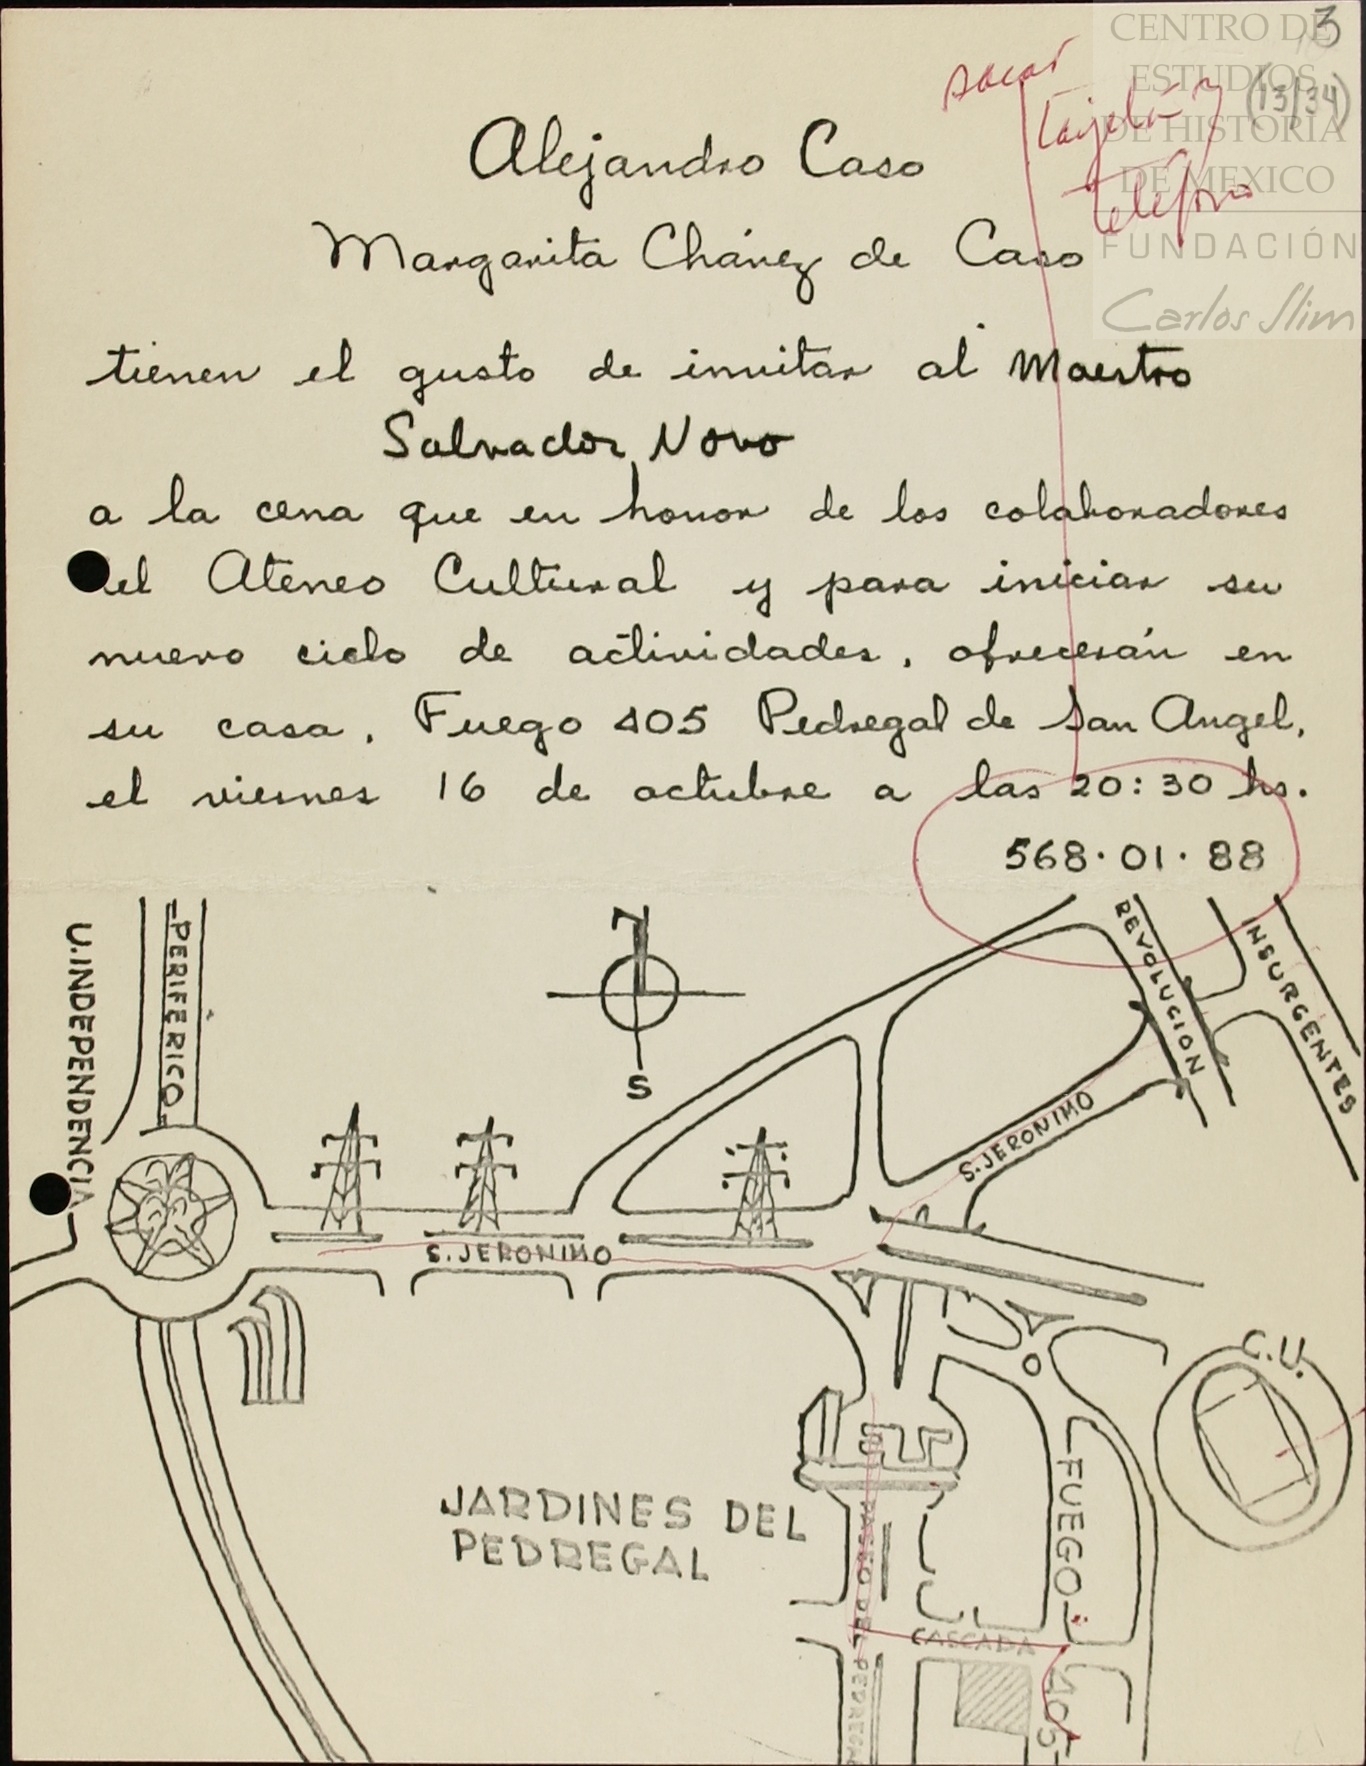 3
(13/34)
CENTRO DE
ESTUDIOS
DE HISTORIA
DE MEXICO
FUNDACIÓN
Carlos Slim
sacar
tarjeta y
teléfono
Alejandro Caso
Margarita Chávez de Caso
tienen el gusto de invitar al Maestro
Salvador Novo
a la cena que en honor de los colaboradores
del Ateneo Cultural y para iniciar su
nuevo ciclo de actividades, ofrecerán en
su casa, Fuego 405 Pedregal de San Angel,
el viernes 16 de octubre a las 20:30 hs.
568·01·88
U. INDEPENDENCIA
PERIFERICO
N
S
REVOLUCION
INSURGENTES
S. JERONIMO
S. JERONIMO
C.U.
JARDINES DEL
PEDREGAL
PASEO DEL PEDREGAL
FUEGO
CASCADA
405